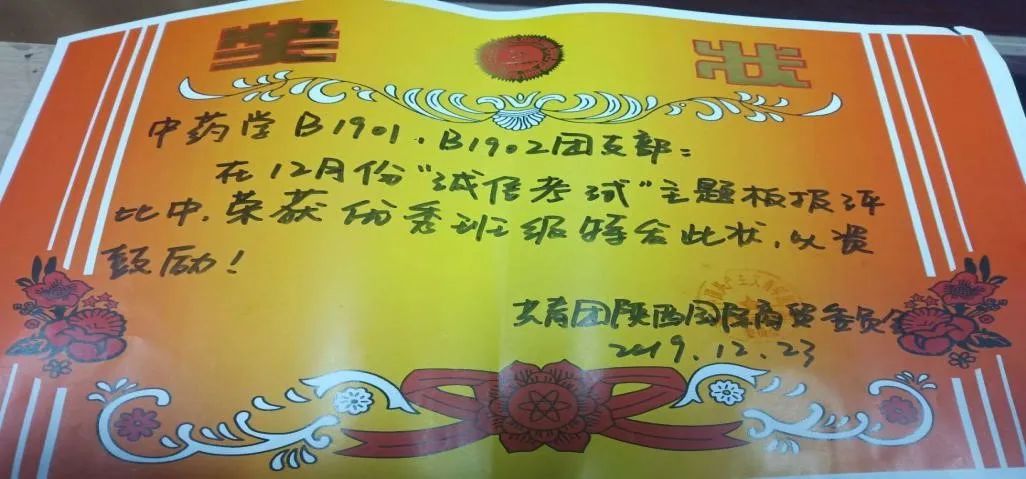 奖 状
中药学B1901、B1902团支部：
在12月份“诚信考试”主题板报评
比中，荣获 份秀班级特发此状，以资
鼓励！
共青团陕西国际商贸委员会
2019.12.23